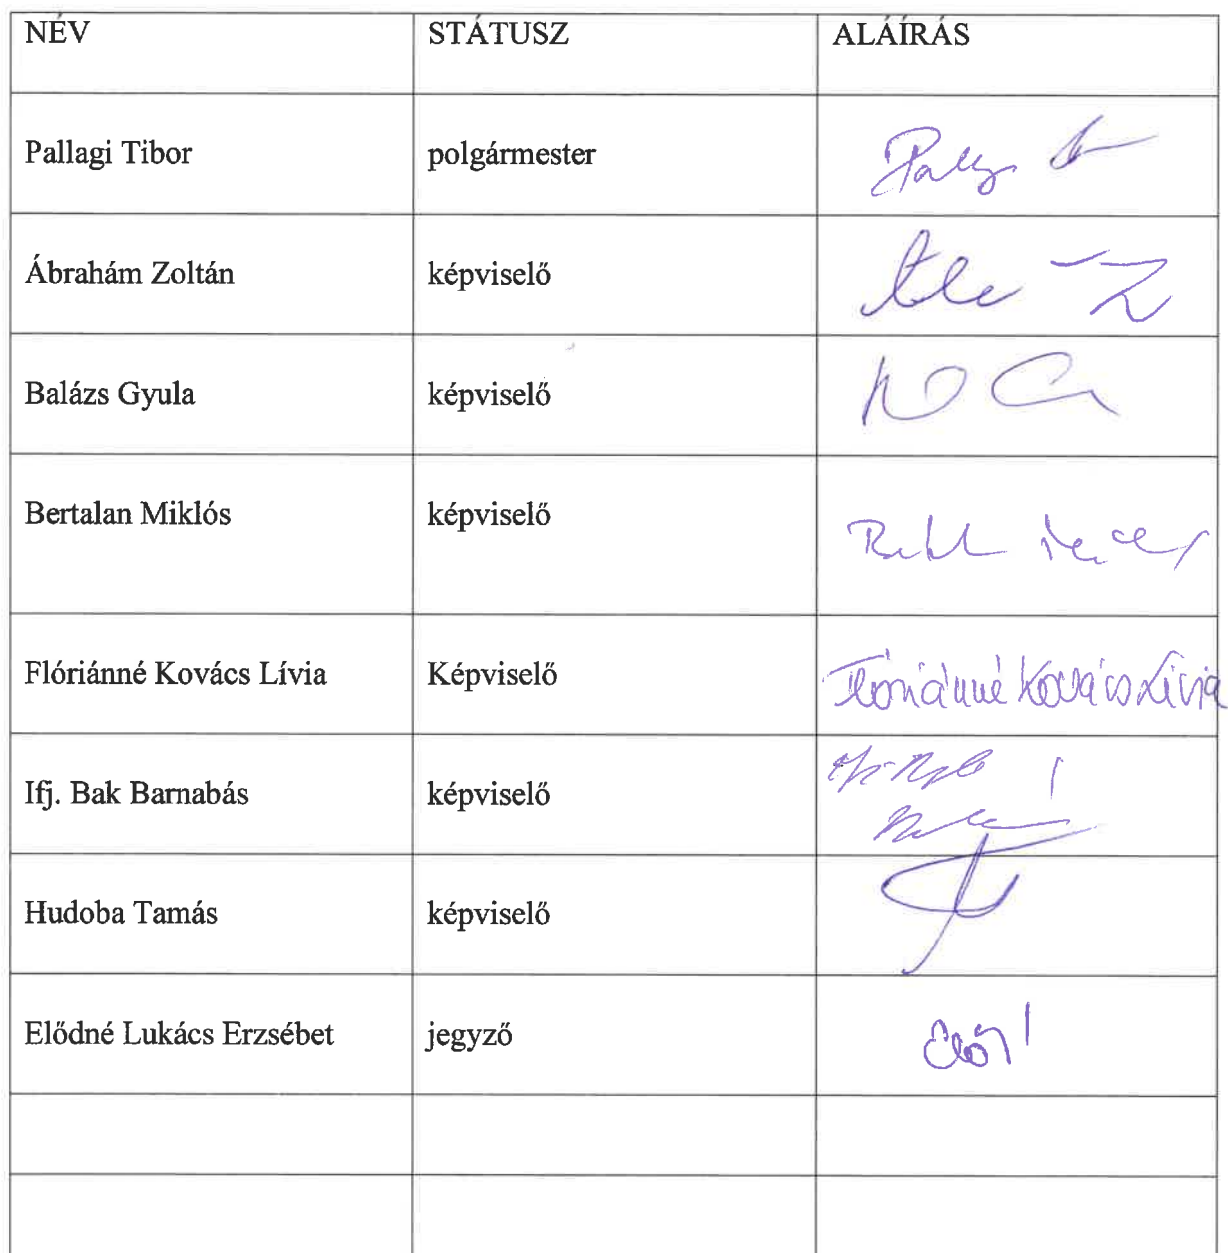 NÉV STÁTUSZ ALÁÍRÁS
Pallagi Tibor polgármester
Ábrahám Zoltán képviselő
Balázs Gyula képviselő
Bertalan Miklós képviselő
Flóriánné Kovács Lívia Képviselő Flóriánné Kovács Lívia
Ifj. Bak Barnabás képviselő
Hudoba Tamás képviselő
Elődné Lukács Erzsébet jegyző